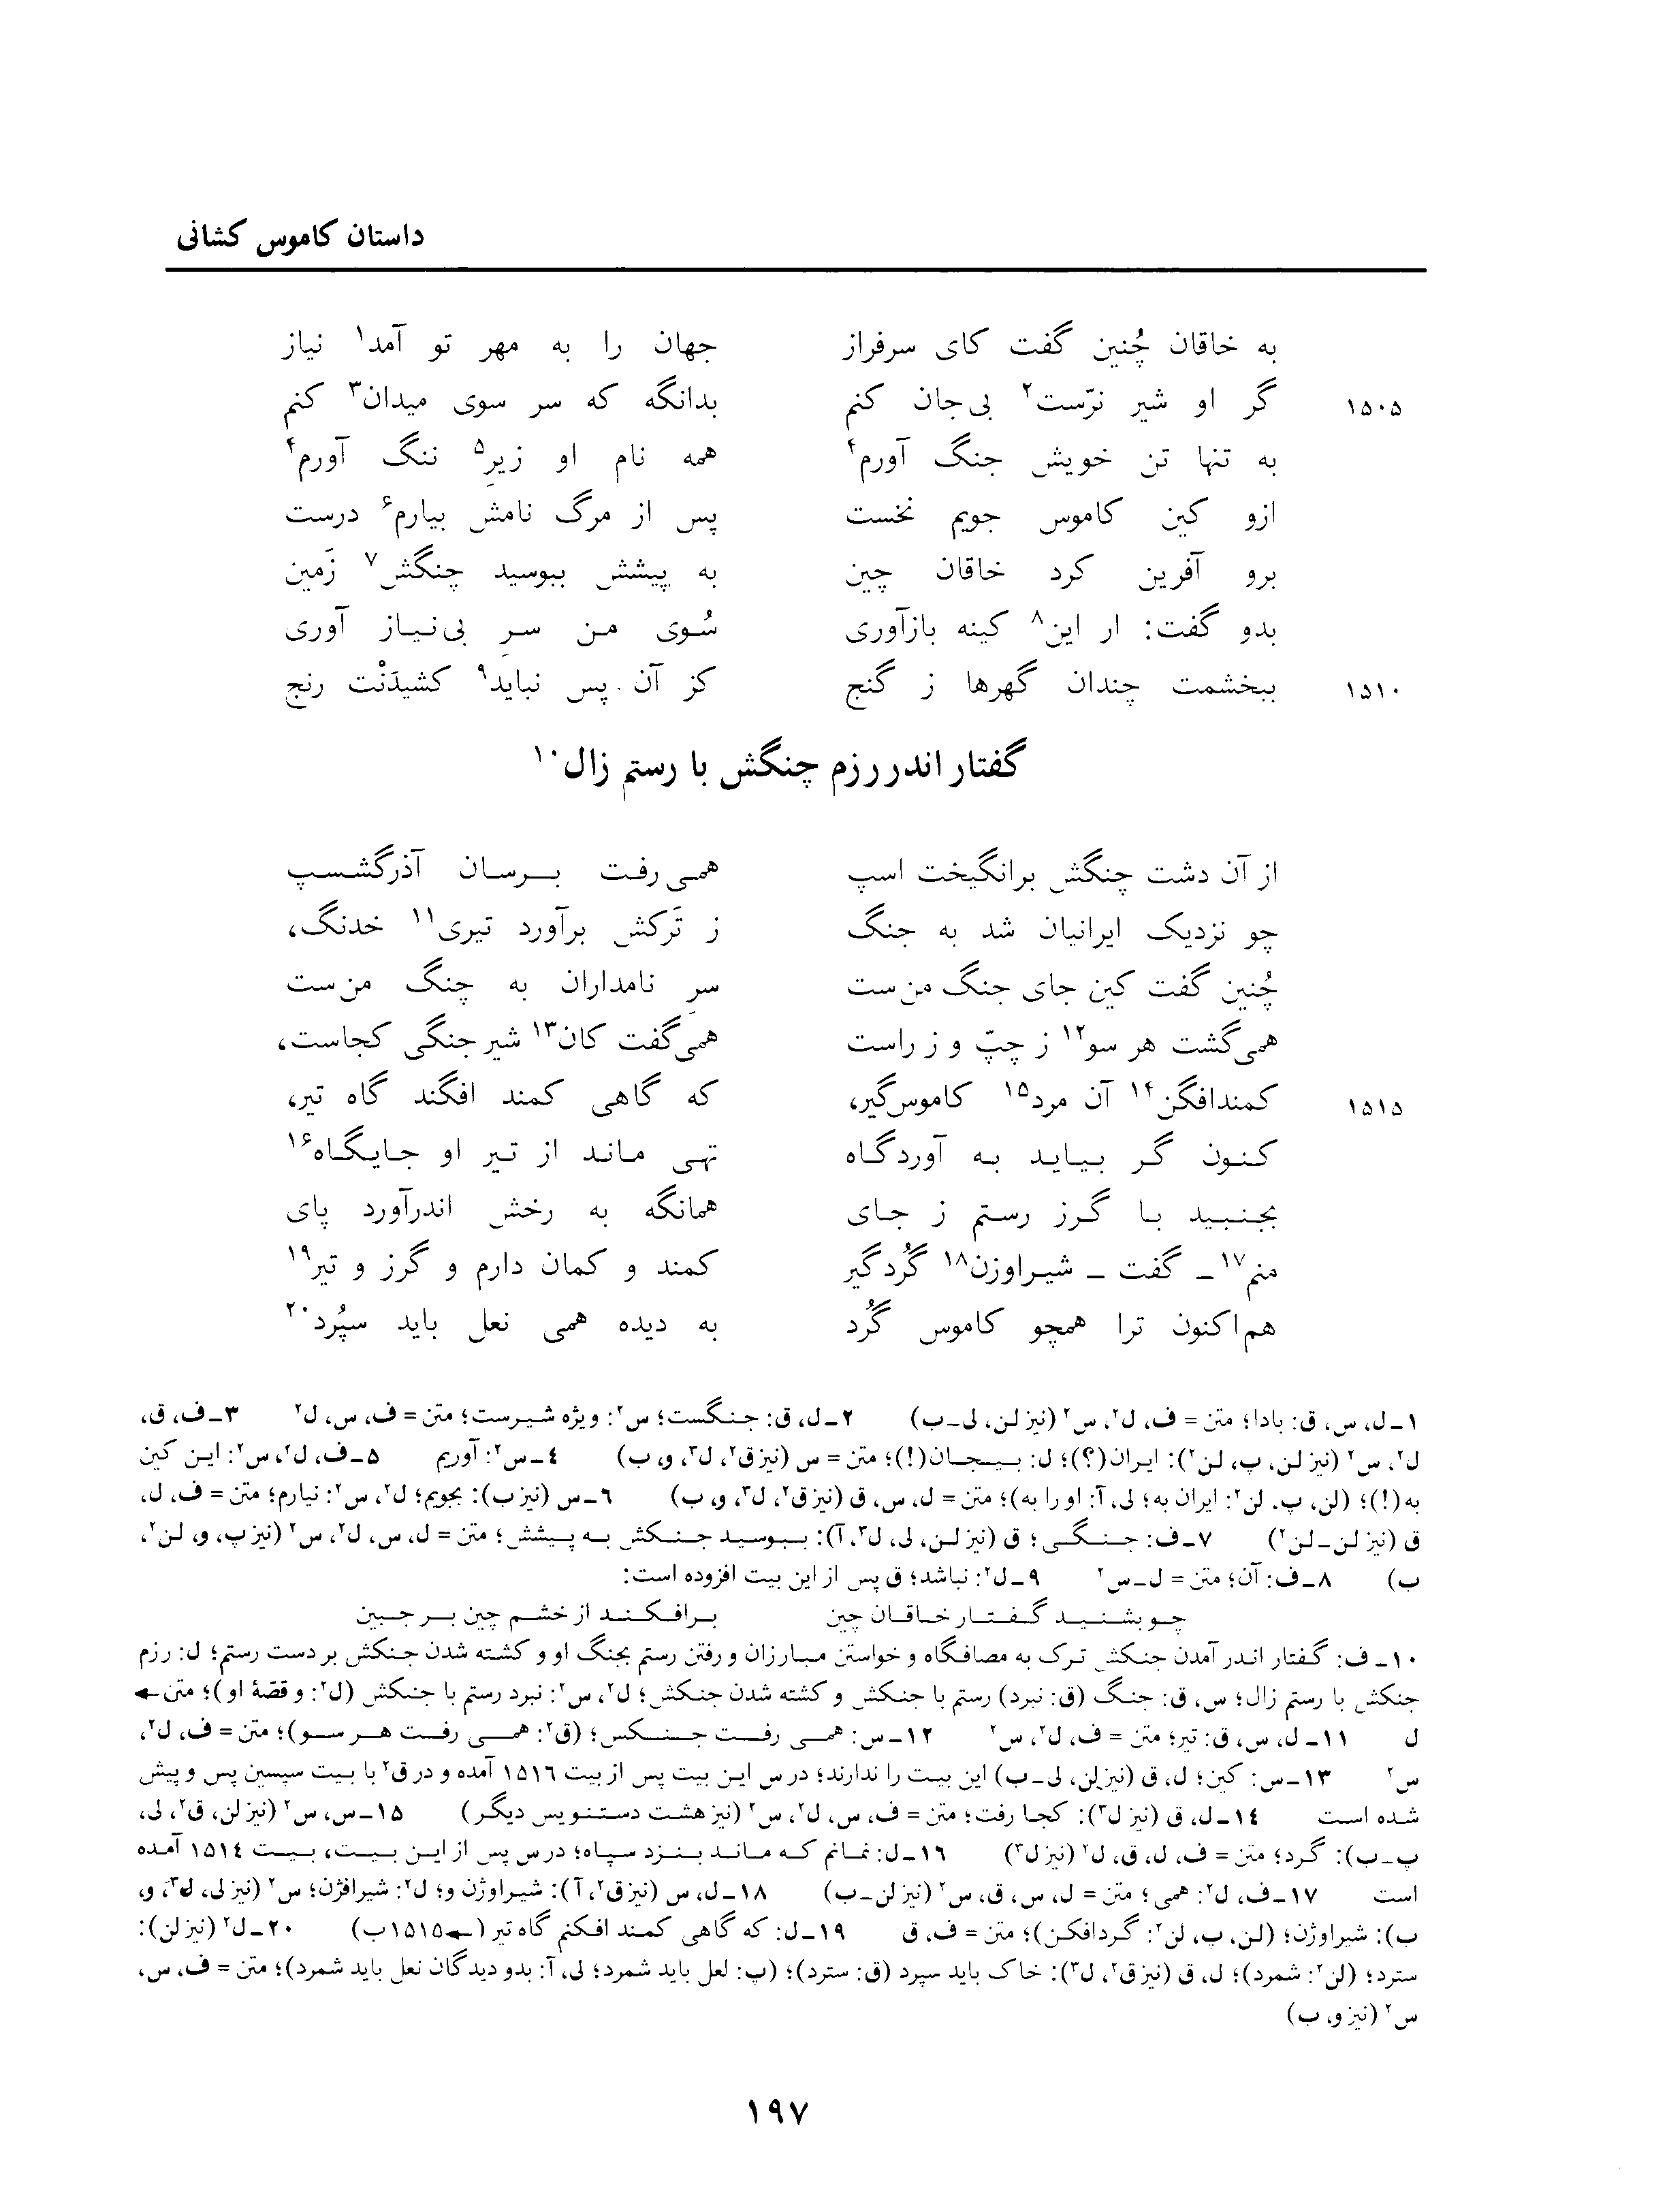 داستان کاموس کشانی
به خاقان چُنین گفت کای سرفراز جهان را به مهر تو آمد۱ نیاز
۱۵۰۵ گر او شیر نرّست۲ بی‌جان کنم بدانگه که سر سوی میدان۳ کنم
به تنها تن خویش جنگ آورم۴ همه نام او زیرِ۵ ننگ آورم۴
ازو کین کاموس جویم نخست پس از مرگ نامش بیارم۶ درست
برو آفرین کرد خاقان چین به پیشش ببوسید چنگش۷ زَمین
بدو گفت: ار این۸ کینه بازآوری سُوی من سرِ بی‌نیاز آوری
۱۵۱۰ ببخشمت چندان گهرها ز گنج کز آن پس نباید۹ کشیدَنْت رنج
گفتار اندر رزم چنگش با رستم زال۱۰
از آن دشت چنگش برانگیخت اسپ همی‌رفت برسان آذرگشسپ
چو نزدیک ایرانیان شد به جنگ ز تَرکش برآورد تیری۱۱ خدنگ،
چُنین گفت کین جای جنگ من‌ست سرِ نامداران به چنگ من‌ست
همی‌گشت هر سو۱۲ ز چپّ و ز راست همی‌گفت کان۱۳ شیر جنگی کجاست،
۱۵۱۵ کمندافگن۱۴ آن مرد۱۵ کاموس‌گیر، که گاهی کمند افگند گاه تیر،
کنون گر بیاید به آوردگاه تهی ماند از تیر او جایگاه۱۶
بجنبید با گرز رستم ز جای همانگه به رخش اندرآورد پای
منم۱۷ ـ گفت ـ شیراوزن۱۸ گُردگیر کمند و کمان دارم و گرز و تیر۱۹
هم‌اکنون ترا همچو کاموس گُرد به دیده همی نعل باید سپُرد۲۰
۱ـ ل، س، ق: بادا؛ متن = ف، ل۲، س۲ (نیز لن، لی ـ ب) ۲ـ ل، ق: جنگست؛ س۲: ویژه شیرست؛ متن = ف، س، ل۲ ۳ـ ف، ق،
ل۲، س۲ (نیز لن، پ، لن۲): ایران(؟)؛ ل: بیجان(!)؛ متن = س (نیز ق۲، ل۳، و، ب) ٤ـ س۲: آوریم ۵ـ ف، ل۲، س۲: این کین
به(!)؛ (لن، پ، لن۲: ایران به؛ لی، آ: او را به)؛ متن = ل، س، ق (نیز ق۲، ل۳، و، ب) ٦ـ س (نیز ب): بجویم؛ ل۲، س۲: نیارم؛ متن = ف، ل،
ق (نیز لن ـ لن۲) ۷ـ ف: جنگی؛ ق (نیز لن، لی، ل۳، آ): ببوسید جنکش به پیشش؛ متن = ل، س، ل۲، س۲ (نیز پ، و، لن۲،
ب) ۸ـ ف: آن؛ متن = ل ـ س۲ ۹ـ ل۲: نباشد؛ ق پس از این بیت افزوده است:
چو بشنید گفتار خاقان چین برافکند از خشم چین بر جبین
۱۰ـ ف: گفتار اندر آمدن جنکش ترک به مصافگاه و خواستن مبارزان و رفتن رستم بجنگ او و کشته شدن جنکش بر دست رستم؛ ل: رزم
جنکش با رستم زال؛ س، ق: جنگ (ق: نبرد) رستم با جنکش و کشته شدن جنکش؛ ل۲، س۲: نبرد رستم با جنکش (ل۲: و قصّهٔ او)؛ متن ←
ل ۱۱ـ ل، س، ق: تیر؛ متن = ف، ل۲، س۲ ۱۲ـ س: همی رفت جنکس؛ (ق۲: همی رفت هر سو)؛ متن = ف، ل۲،
س۲ ۱۳ـ س: کین؛ ل، ق (نیز لن، لی ـ ب) این بیت را ندارند؛ در س این بیت پس از بیت ۱۵۱٦ آمده و در ق۲ با بیت سپسین پس و پیش
شده است ۱٤ـ ل، ق (نیز ل۳): کجا رفت؛ متن = ف، س، ل۲، س۲ (نیز هشت دستنویس دیگر) ۱۵ـ س، س۲ (نیز لن، ق۲، لی،
پ ـ ب): گرد؛ متن = ف، ل، ق، ل۲ (نیز ل۳) ۱٦ـ ل: نمانم که ماند بنزد سپاه؛ در س پس از این بیت، بیت ۱۵۱٤ آمده
است ۱۷ـ ف، ل۲: همی؛ متن = ل، س، ق، س۲ (نیز لن ـ ب) ۱۸ـ ل، س (نیز ق۲، آ): شیراوژن و؛ ل۲: شیرافژن؛ س۲ (نیز لی، ل۳، و،
ب): شیراوژن؛ (لن، پ، لن۲: گردافکن)؛ متن = ف، ق ۱۹ـ ل: که گاهی کمند افکنم گاه تیر (←۱۵۱۵ب) ۲۰ـ ل۲ (نیز لن):
سترد؛ (لن۲: شمرد)؛ ل، ق (نیز ق۲، ل۳): خاک باید سپرد (ق: سترد)؛ (پ: لعل باید شمرد؛ لی، آ: بدو دیدگان نعل باید شمرد)؛ متن = ف، س،
س۲ (نیز و، ب)
۱۹۷